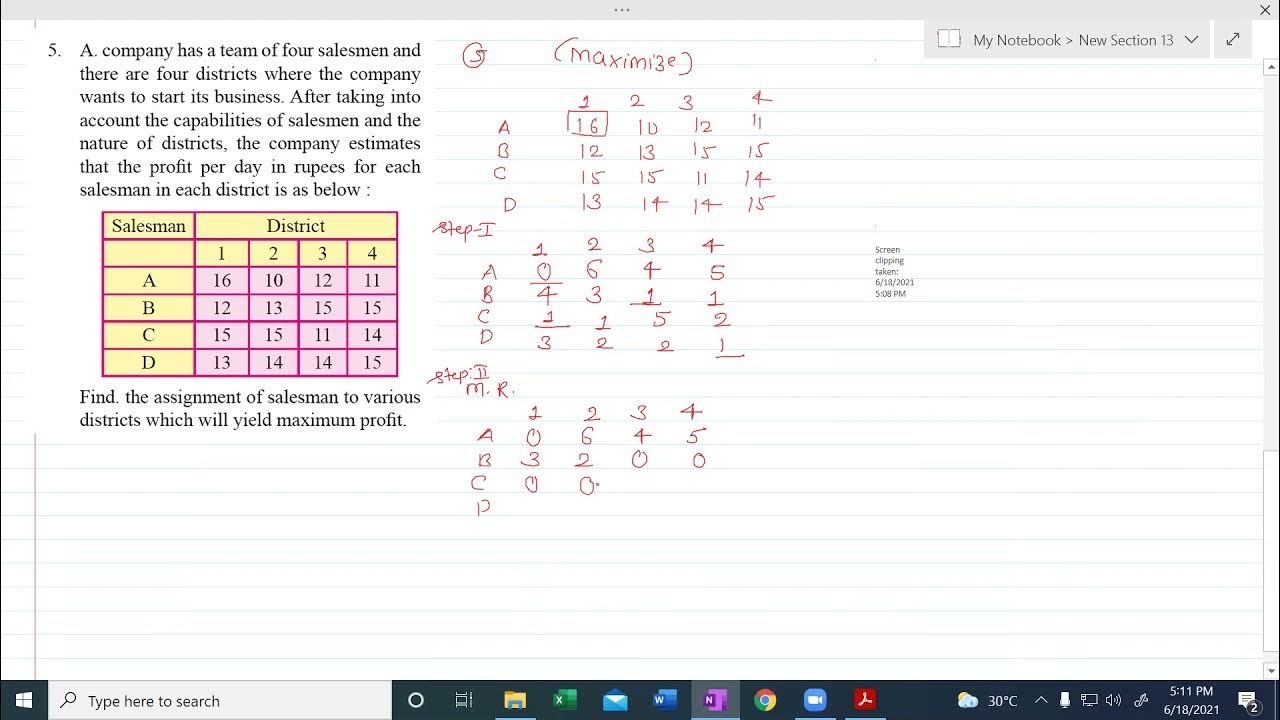 My Notebook > New Section 13
5. A. company has a team of four salesmen and
there are four districts where the company
wants to start its business. After taking into
account the capabilities of salesmen and the
nature of districts, the company estimates
that the profit per day in rupees for each
salesman in each district is as below :
Salesman District
1 2 3 4
A 16 10 12 11
B 12 13 15 15
C 15 15 11 14
D 13 14 14 15
Find. the assignment of salesman to various
districts which will yield maximum profit.
(Maximize)
1 2 3 4
A 16 10 12 11
B 12 13 15 15
C 15 15 11 14
D 13 14 14 15
Step-I
1 2 3 4
A 0 6 4 5
B 4 3 1 1
C 1 1 5 2
D 3 2 2 1
Step:II
M.R.
1 2 3 4
A 0 6 4 5
B 3 2 0 0
C 0 0
D
Screen
clipping
taken:
6/18/2021
5:08 PM
Type here to search
30°C
5:11 PM
6/18/2021
2